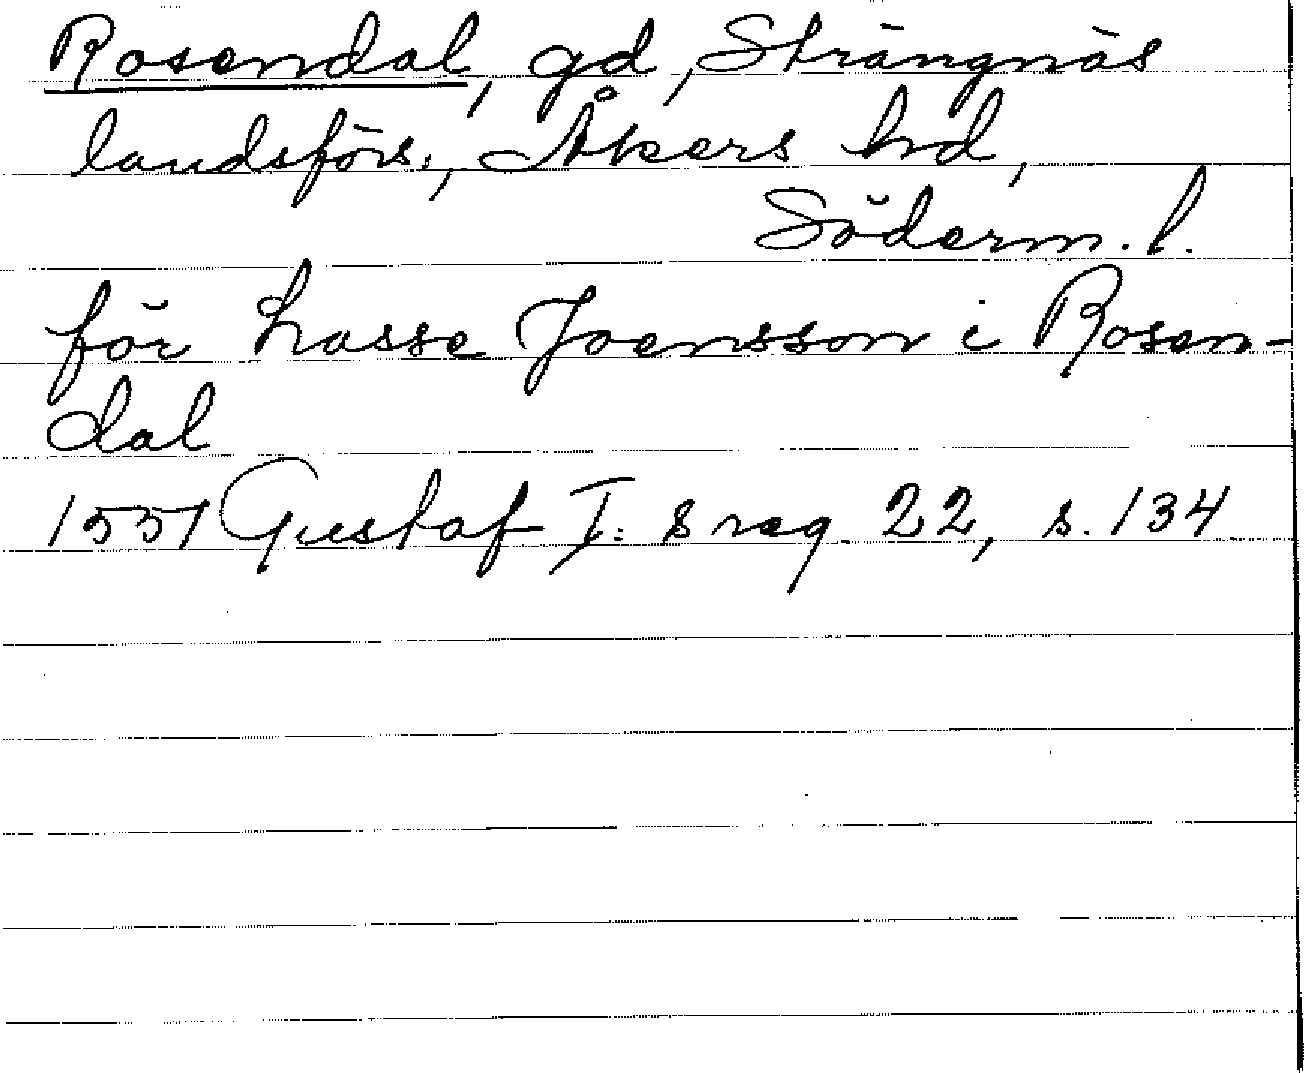 Rosendal, gd, Strängnäs
landsförs., Åkers hd,
Söderm. l.
för Lasse Joensson i Rosen-
dal
1551 Gustaf I:s reg. 22, s. 134